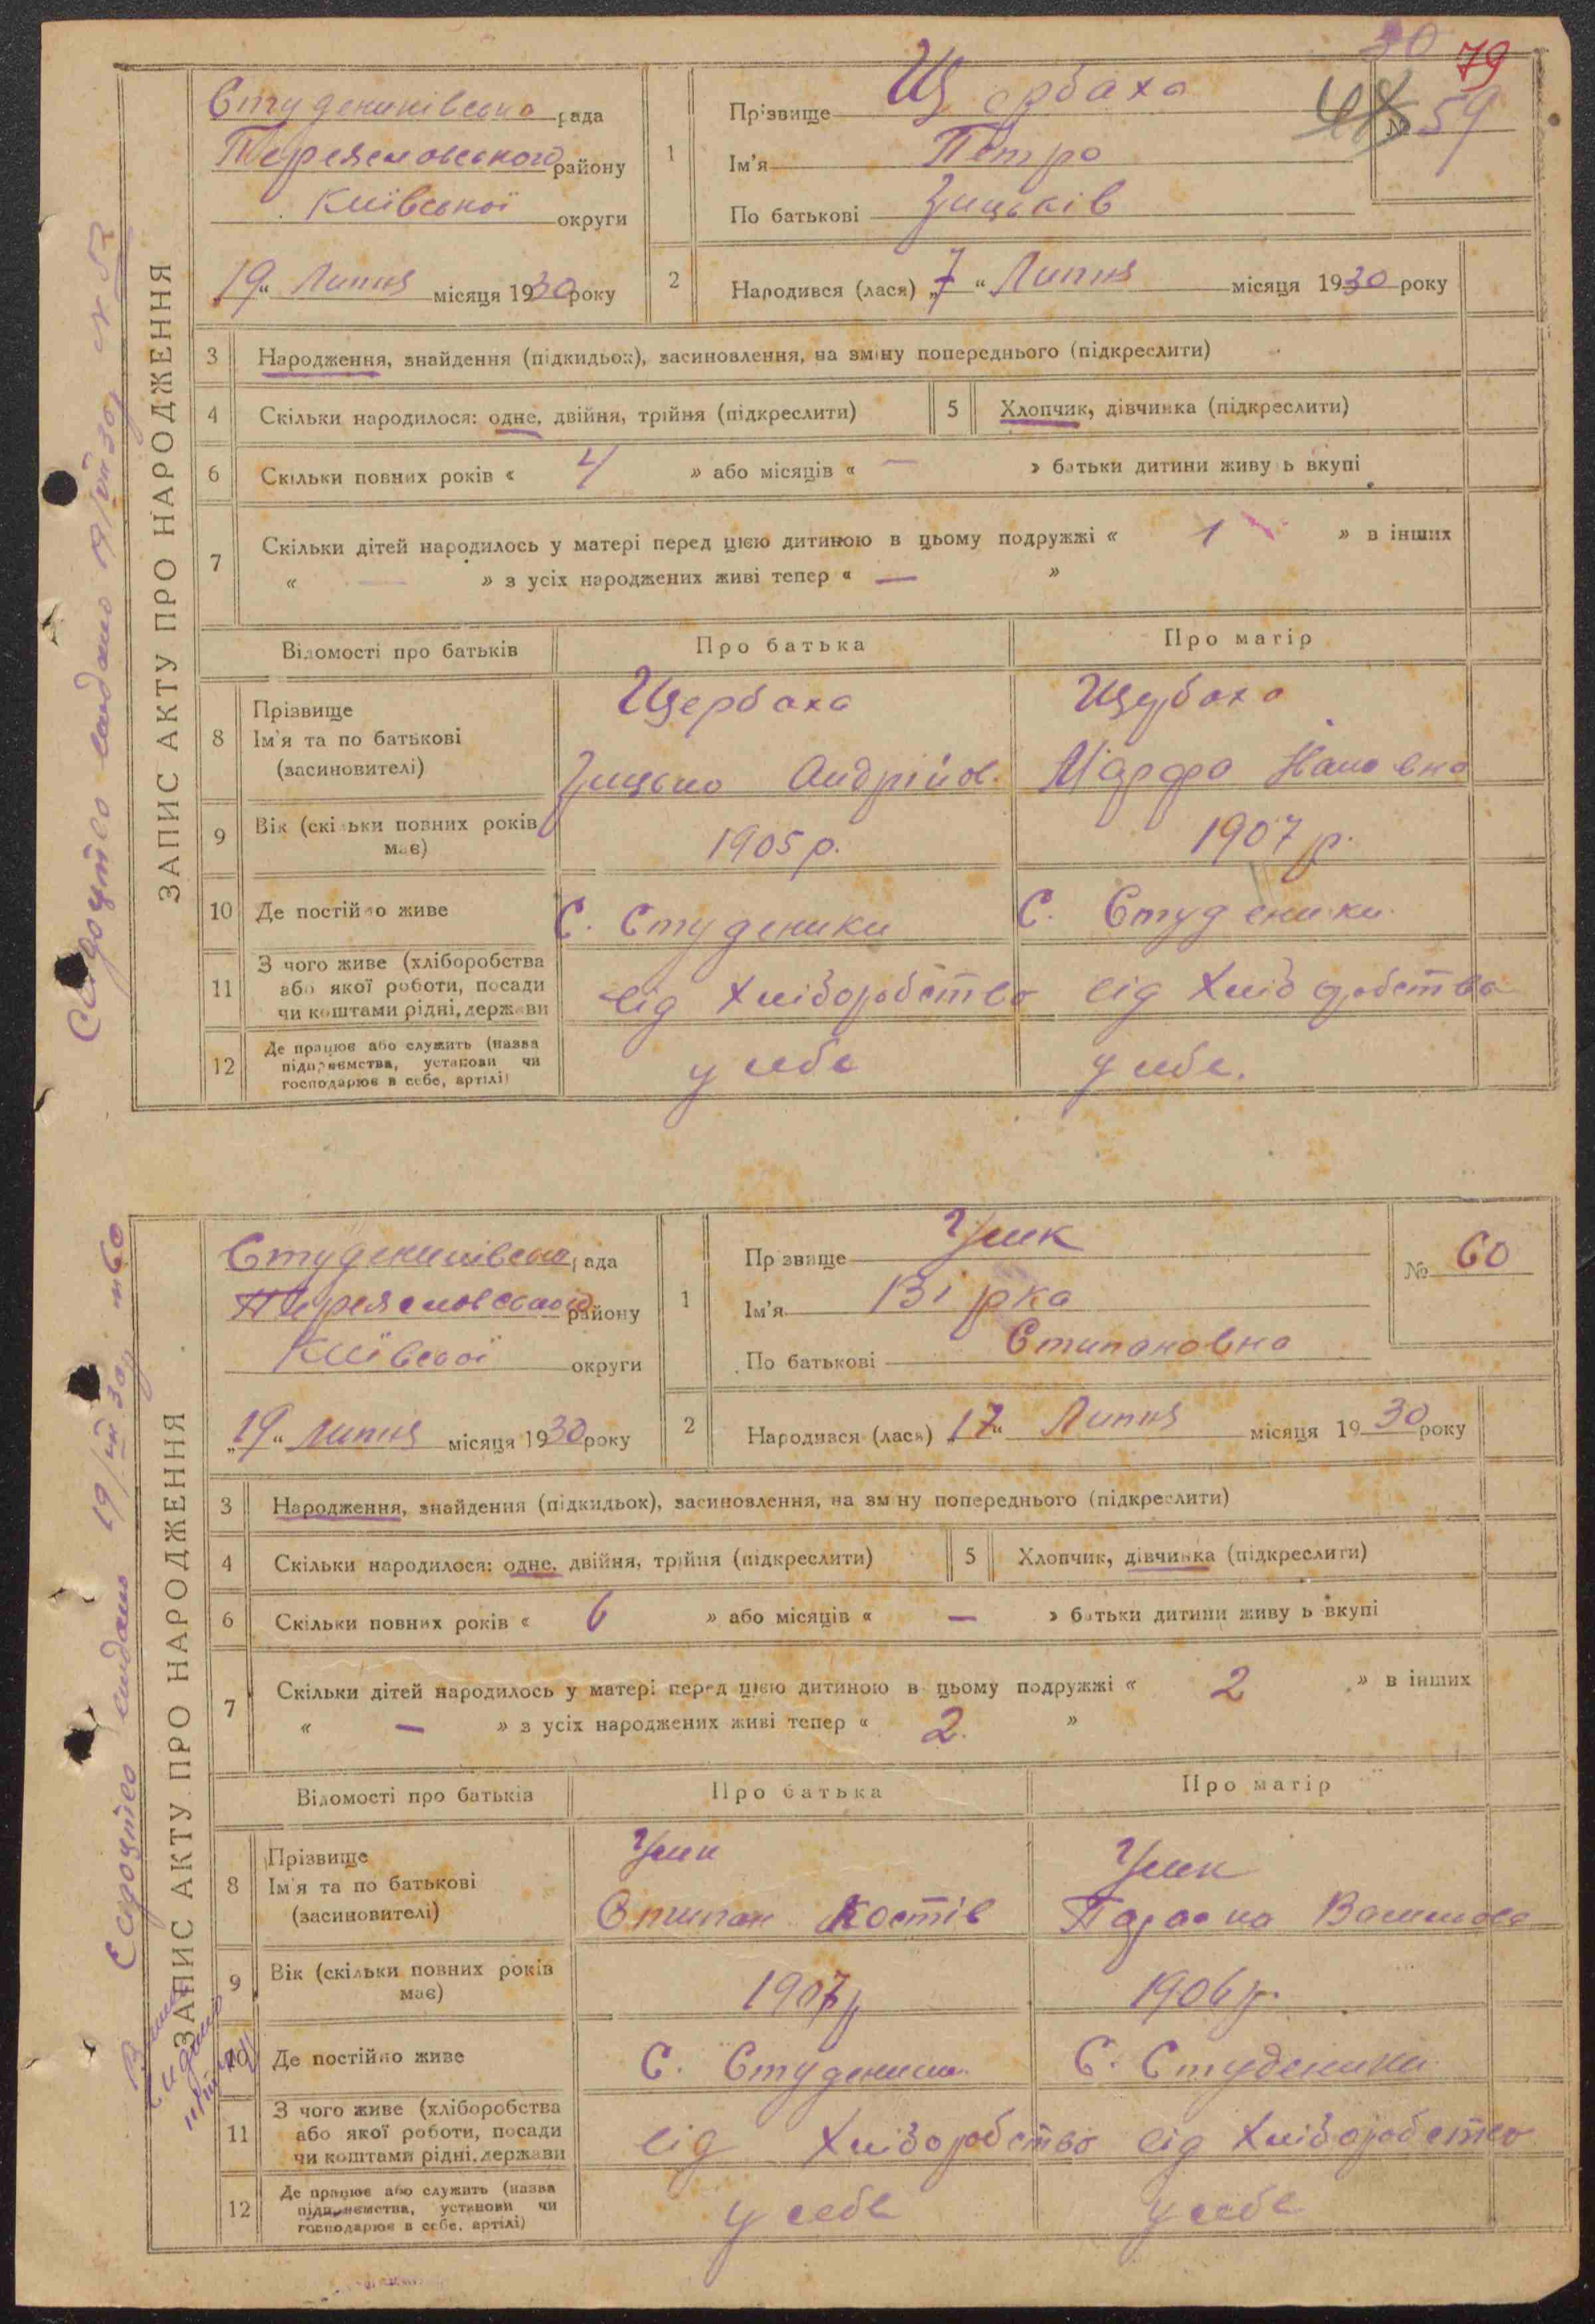 30 79
Студениківська рада
Переяславського району
Київської округи
"19" Липня місяця 1930 року
1
Прізвище Щербаха
Ім'я Петро
По батькові Грицьків
№ 59
2
Народився (лася) "7" Липня місяця 1930 року
ЗАПИС АКТУ ПРО НАРОДЖЕННЯ
3 Народження, знайдення (підкидьок), засиновлення, на зміну попереднього (підкреслити)
4 Скільки народилося: одне, двійня, трійня (підкреслити) 5 Хлопчик, дівчинка (підкреслити)
6 Скільки повних років « 4 » або місяців « — » батьки дитини живуть вкупі
7 Скільки дітей народилось у матері перед цією дитиною в цьому подружжі « 1 » в інших
« — » з усіх народжених живі тепер « — »
Відомості про батьків Про батька Про матір
8 Прізвище
Ім'я та по батькові
(засиновителі)
Щербаха
Грицько Андрійов.
Щербаха
Марфа
9 Вік (скільки повних років
має)
1905 р. 1907 р.
10 Де постійно живе С. Студеники С. Студеники
11 З чого живе (хліборобства
або якої роботи, посади
чи коштами рідні, держави
від хліборобства від хліборобства
12 Де працює або служить (назва
підприємства, установи чи
господарює в себе, артілі)
у себе у себе.
Студениківська рада
Переяславського району
Київської округи
"19" Липня місяця 1930 року
1
Прізвище
Ім'я Вірка
По батькові Стипановна
№ 60
2
Народився (лася) "17" Липня місяця 1930 року
ЗАПИС АКТУ ПРО НАРОДЖЕННЯ
3 Народження, знайдення (підкидьок), засиновлення, на зміну попереднього (підкреслити)
4 Скільки народилося: одне, двійня, трійня (підкреслити) 5 Хлопчик, дівчинка (підкреслити)
6 Скільки повних років « 6 » або місяців « — » батьки дитини живуть вкупі
7 Скільки дітей народилось у матері перед цією дитиною в цьому подружжі « 2 » в інших
« — » з усіх народжених живі тепер « 2. »
Відомості про батьків Про батька Про матір
8 Прізвище
Ім'я та по батькові
(засиновителі)
Стипан Костів
Параска
9 Вік (скільки повних років
має)
1907 р 1906 р.
10 Де постійно живе С. Студеники С. Студеники
11 З чого живе (хліборобства
або якої роботи, посади
чи коштами рідні, держави
від хліборобства від хліборобства
12 Де працює або служить (назва
підприємства, установи чи
господарює в себе, артілі)
у себе у себе